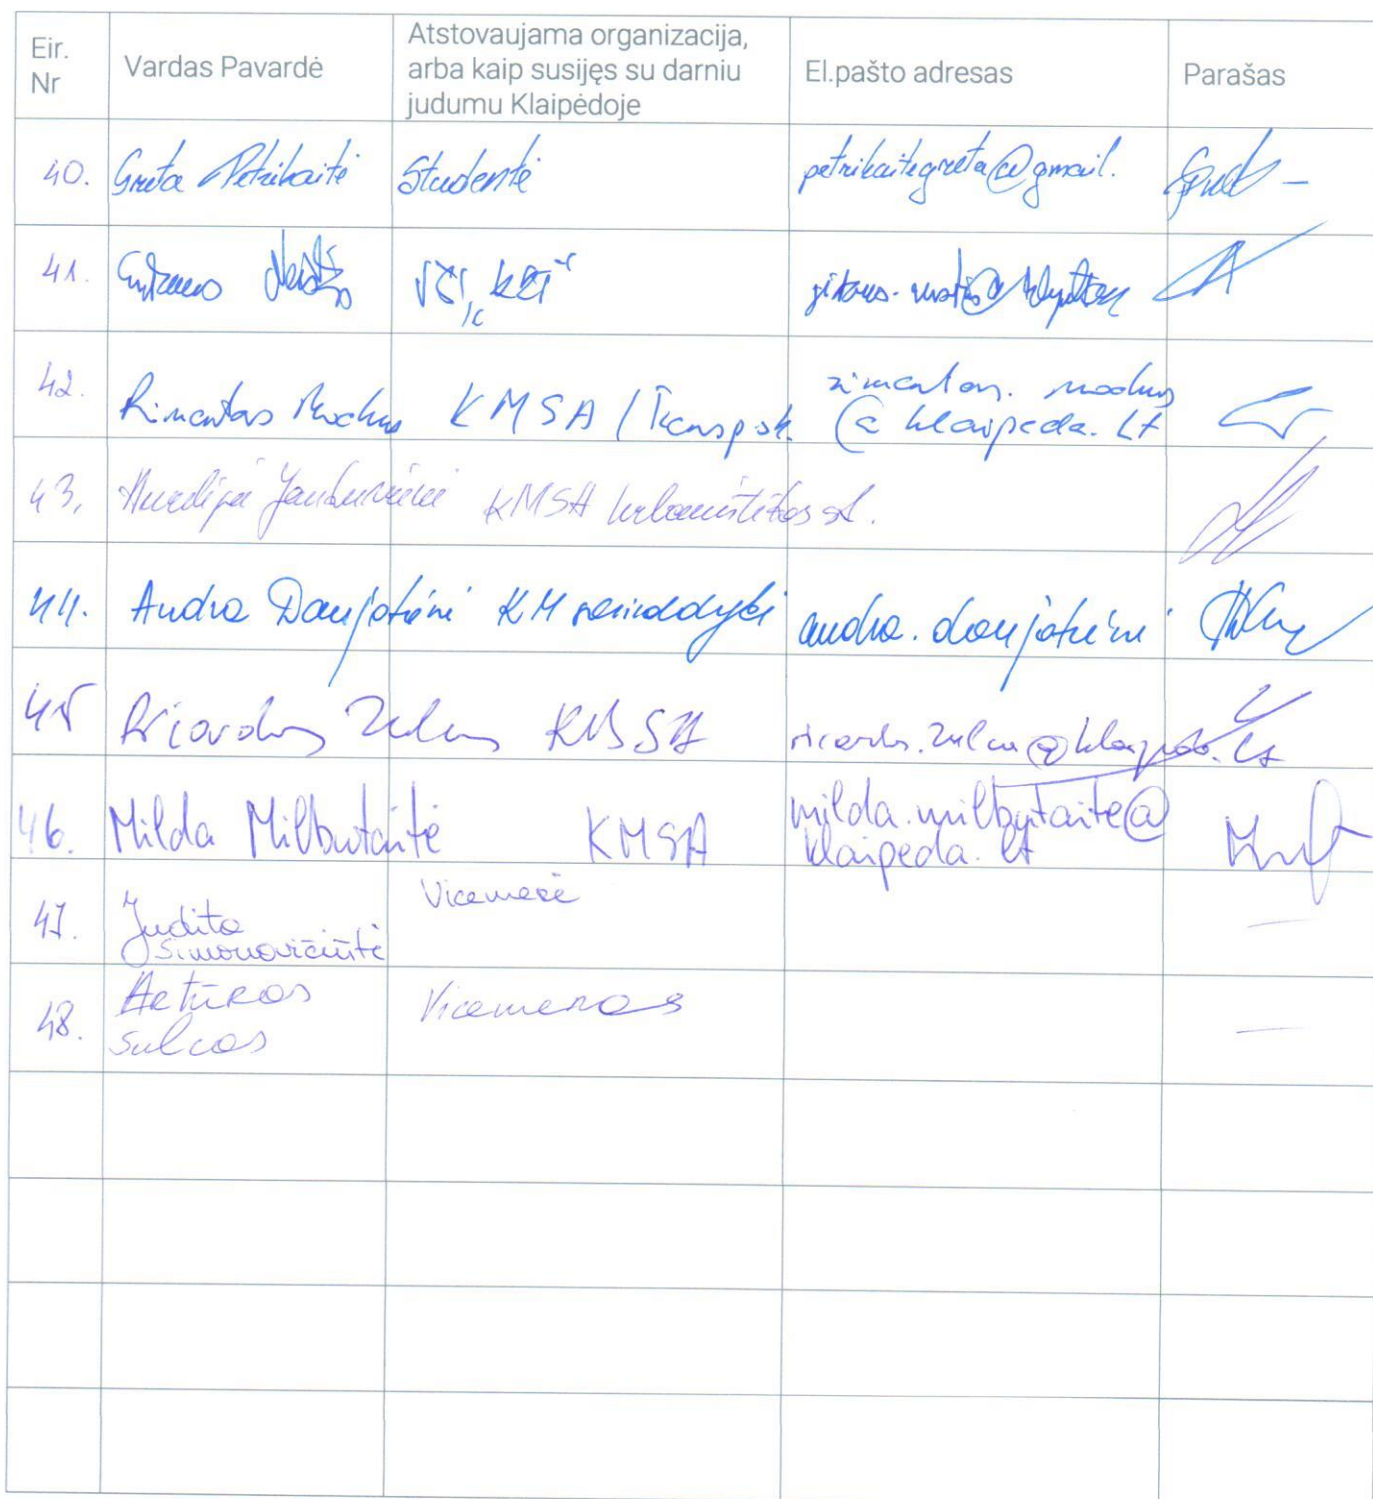 Eir.
Nr
Vardas Pavardė
Atstovaujama organizacija,
arba kaip susijęs su darniu
judumu Klaipėdoje
El.pašto adresas
Parašas
40. Greta Petrikaitė Studentė petrikaitegreta@gmail.
41.
42. Rimantas Mockus KMSA / Transp. sk. rimantas. mockus
@ klaipeda. lt
43, KMSA Urbanistikos sk.
44. Audra Daujotienė KM audra. daujotienė
45 Ričardas Zulcas KMSA ricardas.zulcas@klaipeda.lt
46. Milda Milbutaitė KMSA milda.milbutaite@
klaipeda. lt
47. Judita
Simonavičiūtė
Vicemerė
48. Artūras
Šulcas
Vicemeras